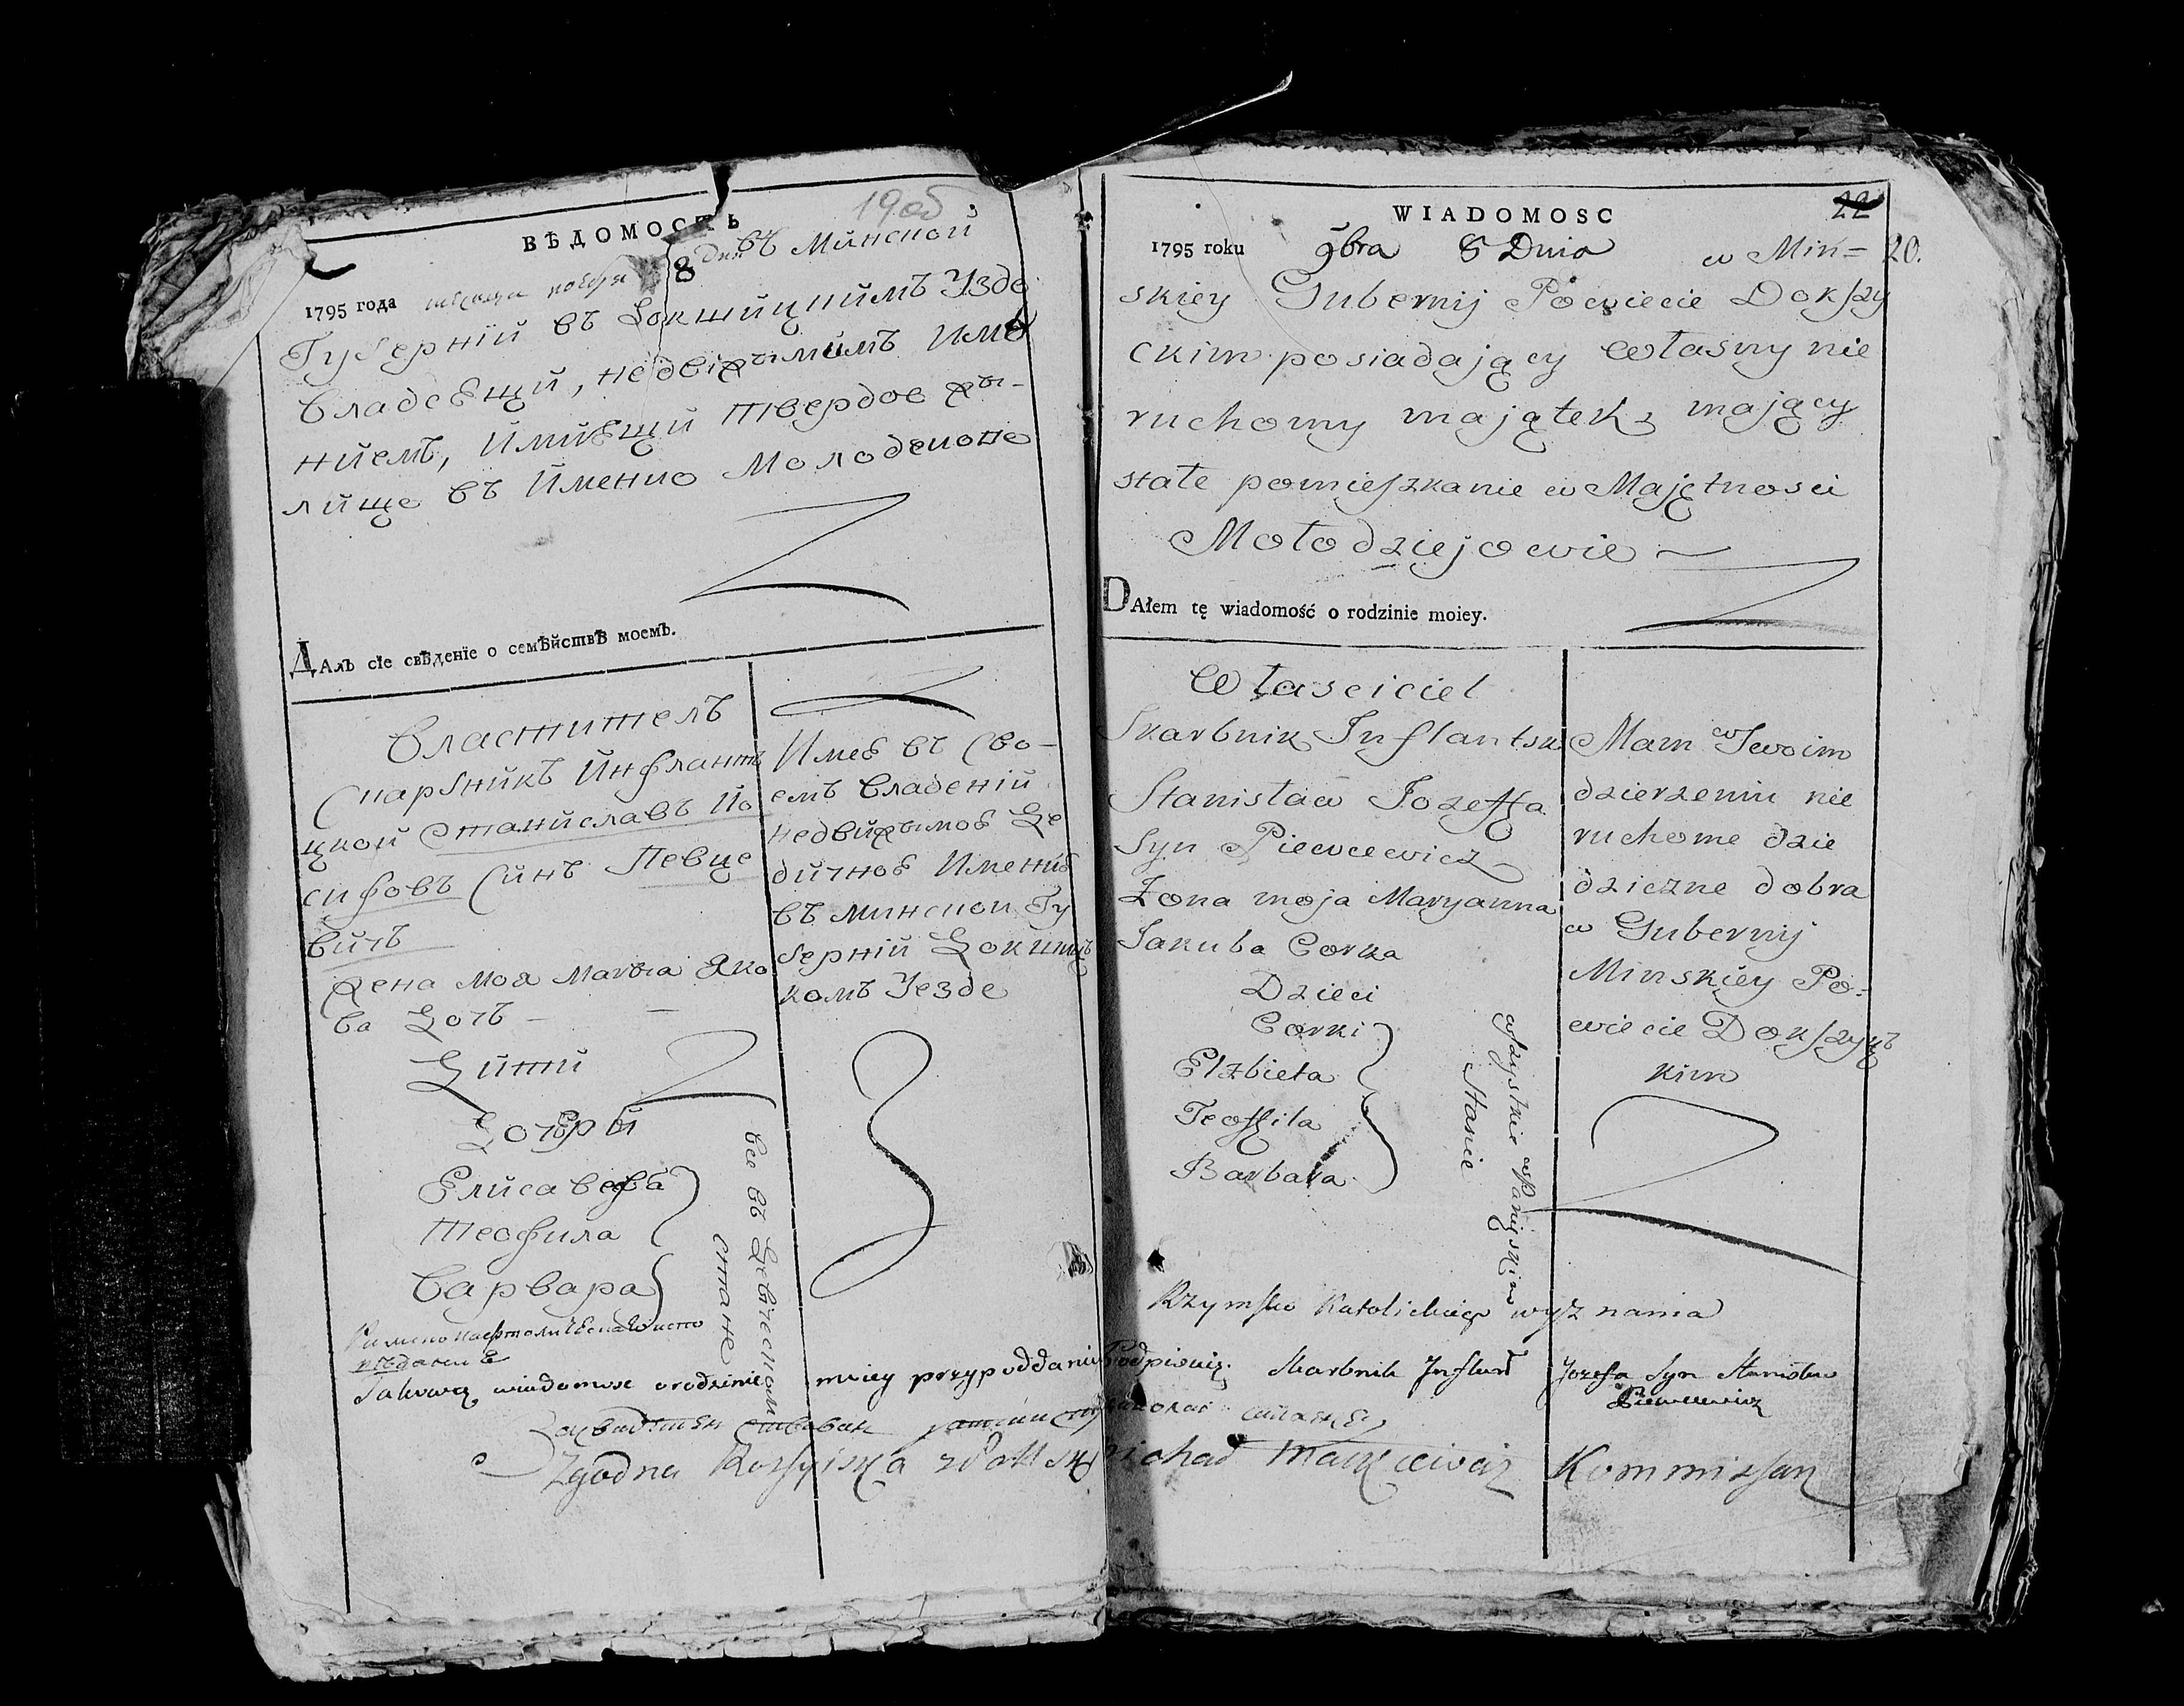 19об
ВѢДОМОСТЬ
1795 года месяца ноебря 8 дня въ Минской
Губерній въ Докшицкимъ Узде
Владевщи, недвіжымимъ Име
ніемъ, Имивщи твердое жы-
лище въ Именіо Молоденоне
ДАлъ сїе свѣденїе о семѣйствѣ моемъ.
Властителъ
Скарбникъ Инфлант
цкой Станиславъ Ио
сифовъ Синъ Певце
вичъ
Жена моя Маrыа Яко
ва Дочъ
Дити
Дочери
Елисавефа
Теофила
Варвара
все въ Девическом
стане
Имеe въ Сво-
емъ владеній
недвижымое Де
дичное Имение
въ минской Гу
берній Докшиц
комъ Уезде
22
WIADOMOSC
1795 roku 9bra 8 Dnia w Miń= 20.
skiey Gubernij Powiecie Dokszy
ckim posiadający własny nie
ruchomy majątek, mający
stałe pomieszkanie w Majętnosci
Mołodziejowie
DAłem tę wiadomość o rodzinie moiey.
Własciciel
Skarbnik Inflantsk
Stanisław Jozeffa
Syn Piewcewicz
Zona moja Maryanna
Jakuba Corka
Dzieci
Corki
Elzbieta
Teoffila
Barbara
wszystkie w Panijskim
Stanie
Mam w Swoim
dzierzeniu nie
ruchome dzie
dziczne dobra
w Gubernij
Minskiey Po=
wiecie Dokszyc
kim
Rzymsko Katolickiego wyznania
Takową wiadomosc o rodzinie moiey przy poddaniu Podpisuię. Skarbnik Inflant Jozefa Syn Stanisław
Piewcewicz
Zgodna Rossyiska z Polsk Michał Mackiewicz Kommissarz